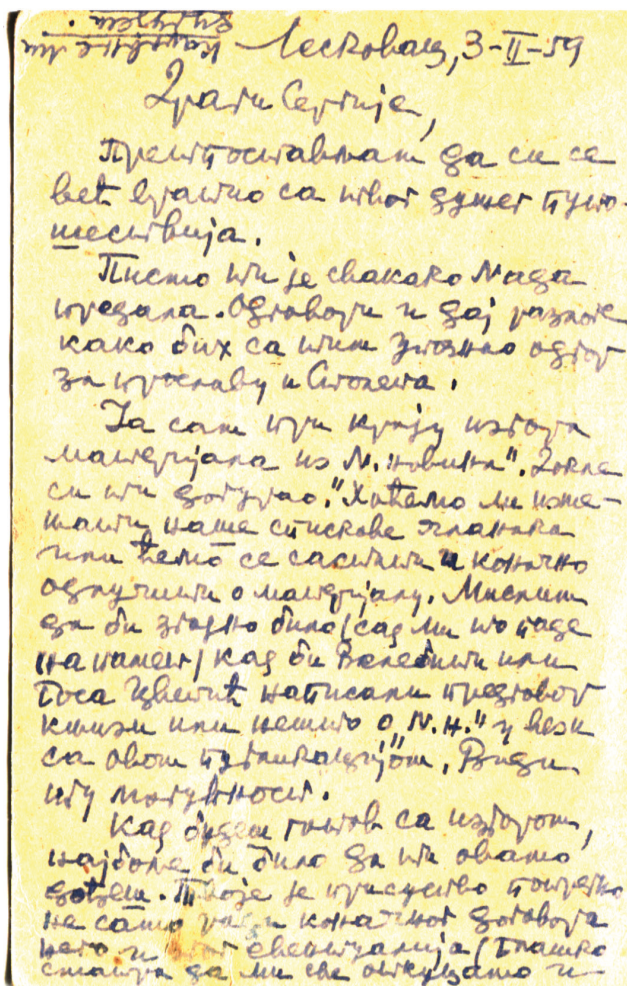 Лесковац, 3-II-59
Драги Сергије,
Претпостављам да си се
већ вратио са твог дужег путо-
шествија.
Писмо ти је свакако Нада
предала. Одговори и дај разлоге
како бих са тим упознао одбор
за прославу и Столета.
Ја сам при крају избора
материјала из „Н. новина". Докле
си ти догурао." Хоћемо ли изме-
њати наше спискове чланака
или ћемо се састати и коначно
одлучити о материјалу. Мислим
да би згодно било /сад ми то паде
на памет/ кад би Велебит или
Гоca Цветић написали предговор
књизи или нешто о „Н.Н." у вези
са овом публикацијом. Види
ту могућност.
Кад будем готов са избором,
најбоље би било да ти овамо
дођеш. Твоје је присуство потребно
не само ради коначног договора
него и због евентуалија /Благко
сматра да ми све откуцамо и